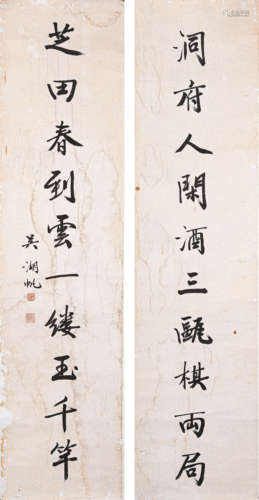 洞府人閑酒三甌棋両局
芝田春到雲一縷玉千竿
吴湖帆